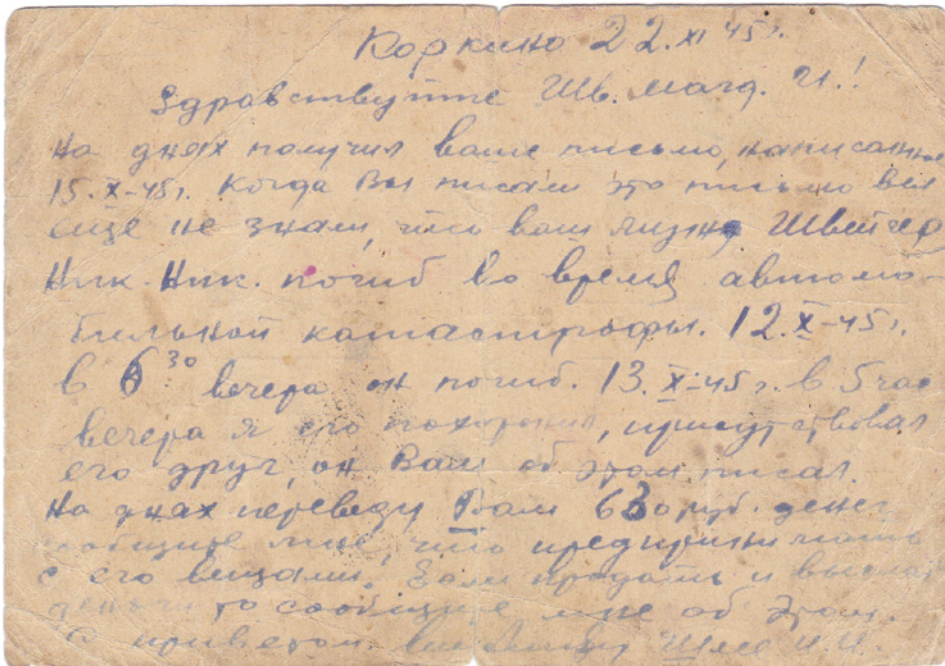 Коркино 22.XI 45г.
Здравствуйте Шв. Магд. И.!
На днях получил ваше письмо, написанное
15.X-45г. Когда Вы писали это письмо вы
еще не знали, что ваш Швейцер
Ник. Ник. погиб во время автомо-
бильной катастрофы. 12.X-45г.
в 6³⁰ вечера он погиб. 13.X-45г. в 5 час
вечера я его похоронил, присутствовал
его друг, он Вам об этом писал.
На днях переведу Вам 630 руб. денег
сообщите мне, что предпринимать
с его вещами. Если продать и выслать
деньги то сообщите мне об этом.
С приветом.